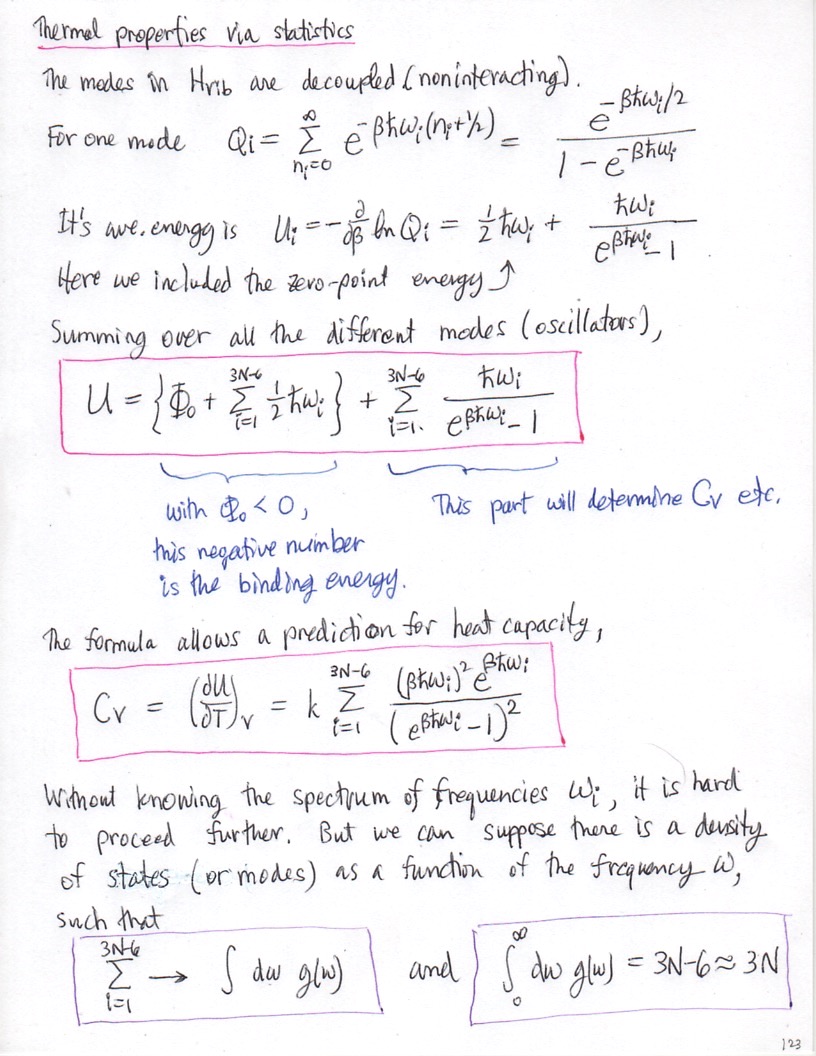 Thermal properties via statistics
The modes in Hvib are decoupled (noninteracting).
For one mode Qi = ∑_{ni=0}^{∞} e^{-βħωi(ni+1/2)} = e^{-βħωi/2} / (1 - e^{-βħωi})
It's ave. energy is Ui = -∂/∂β ln Qi = 1/2 ħωi + ħωi / (e^{βħωi} - 1)
Here we included the zero-point energy ↑
Summing over all the different modes (oscillators),
U = {Φ₀ + ∑_{i=1}^{3N-6} 1/2 ħωi} + ∑_{i=1}^{3N-6} ħωi / (e^{βħωi} - 1)
with Φ₀ < 0, This part will determine Cv etc.
this negative number
is the binding energy.
The formula allows a prediction for heat capacity,
Cv = (∂U/∂T)_V = k ∑_{i=1}^{3N-6} (βħωi)² e^{βħωi} / (e^{βħωi} - 1)²
Without knowing the spectrum of frequencies ωi, it is hard
to proceed further. But we can suppose there is a density
of states (or modes) as a function of the frequency ω,
such that
∑_{i=1}^{3N-6} → ∫ dω g(ω) and ∫_0^∞ dω g(ω) = 3N-6 ≈ 3N
123